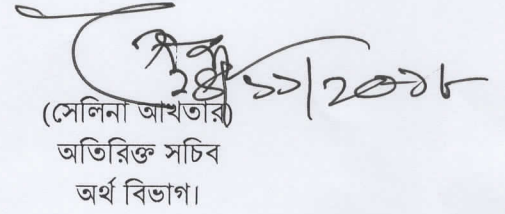 ২৪/১১/২০১৮
(সেলিনা আখতার)
অতিরিক্ত সচিব
অর্থ বিভাগ।